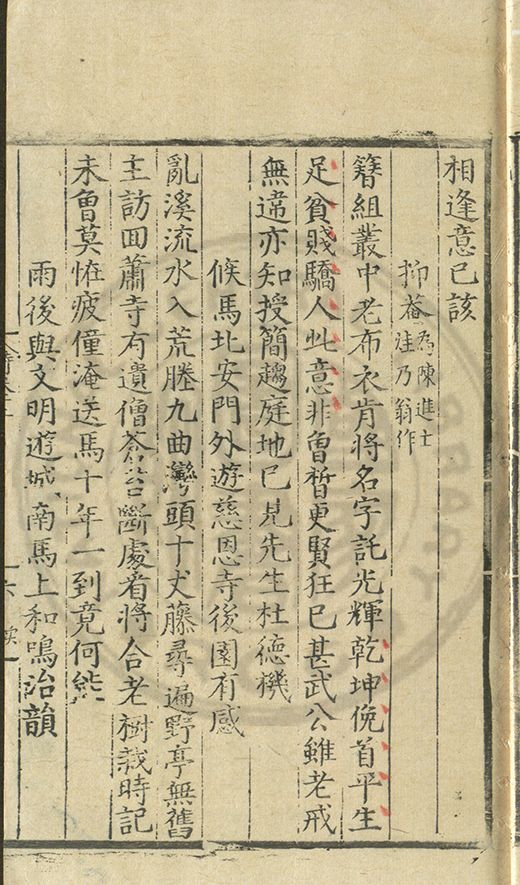 相逢意已該
抑菴爲陳進士
洼乃翁作
簪組叢中老布衣肯將名字託光輝乾坤俛首平生
足貧賤驕人此意非曾晳更賢狂已甚武公雖老戒
無違亦知授簡趨庭地已見先生杜德機
候馬北安門外遊慈恩寺後園有感
亂溪流水入荒塍九曲灣頭十丈藤尋遍野亭無舊
主訪回蕭寺有遺僧蒼苔斷處看將合老樹栽時記
未曾莫怪疲僮淹送馬十年一到竟何能
雨後與文明遊城南馬上和鳴治韻